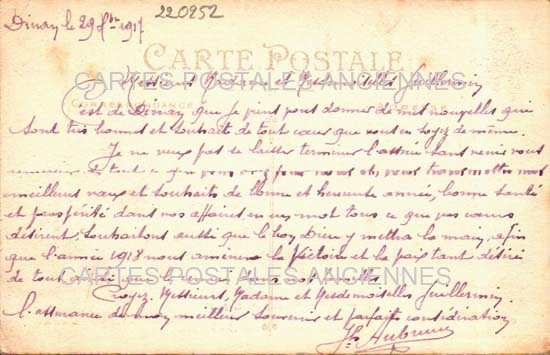 220952
Dinan le 29 Xbre 1917
CARTE POSTALE
Messieurs Madame et Mesdemoiselles Guillermin
CARTES POSTALES ANCIENNES
CORRESPONDANCE
C'est de Dinan que je viens vous donner de mes nouvelles qui
sont très bonnes et souhaite de tout cœur que vous en soyez de même.
Je ne veux pas laisser terminer l'année sans venir vous
remercier de tout ce que vous avez fait pour moi et vous transmettre mes
meilleurs vœux et souhaits de bonne et heureuse année, bonne santé
et prospérité dans vos affaires en un mot tous ce que vos cœurs
désirent, souhaitons aussi que le bon Dieu y mettra la main, afin
que l'année 1918 nous amènera la Victoire et la paix tant désiré
de tous
CARTES POSTALES ANCIENNES
Croyez, Messieurs, Madame et Mesdemoiselles Guillermin,
l'assurance de mon meilleur souvenir et parfaite considération